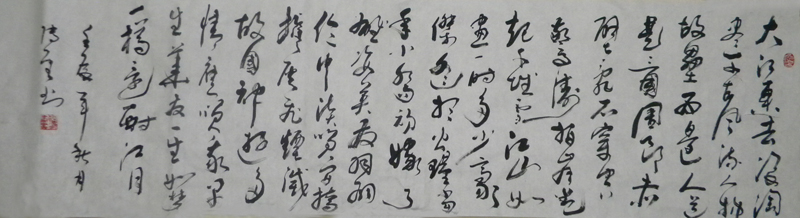 大江東去浪淘
盡千古風流人物
故壘西邊人道
是三國周郎赤
壁亂石穿空
驚濤拍岸卷
起千堆雪江山如
畫一時多少豪
傑遙想公瑾當
年小喬初嫁了
雄姿英發羽扇
綸巾談笑間檣
櫓灰飛煙滅
故國神遊多
情應笑我早
生華发一生如夢
一樽還酹江月
壬辰年秋月